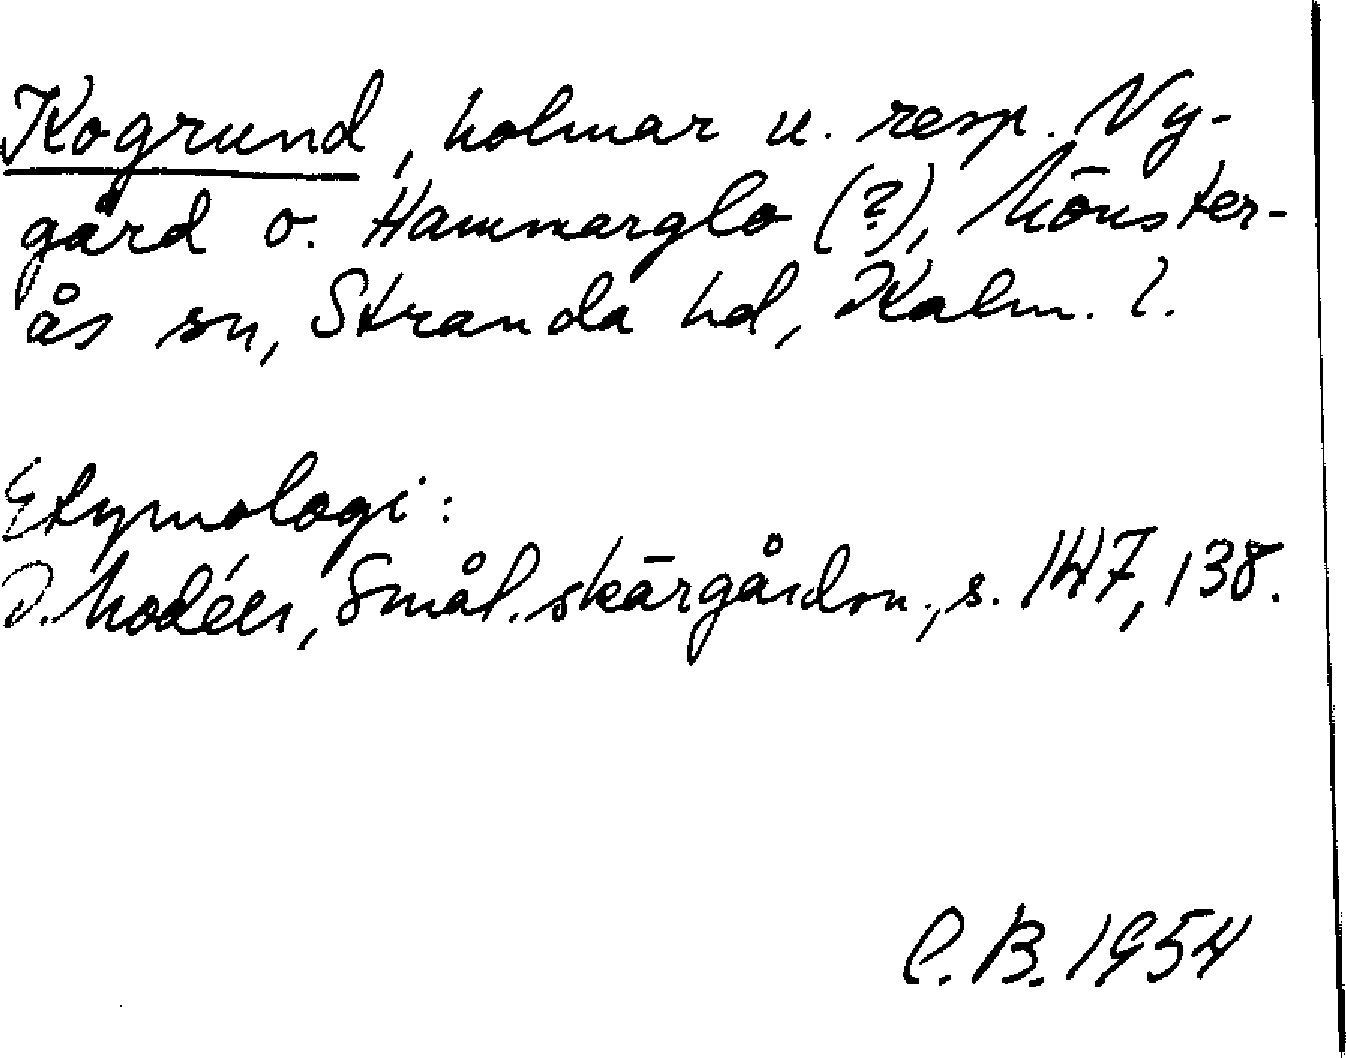 Kogrund, holmar u. resp. Ny-
gård o. Hammarglo (?), Mönster-
ås sn, Stranda hd, Kalm. l.
Etymologi:
I. Modéer, Smål. skärgårdsn., s. 147, 138.
C. B. 1954